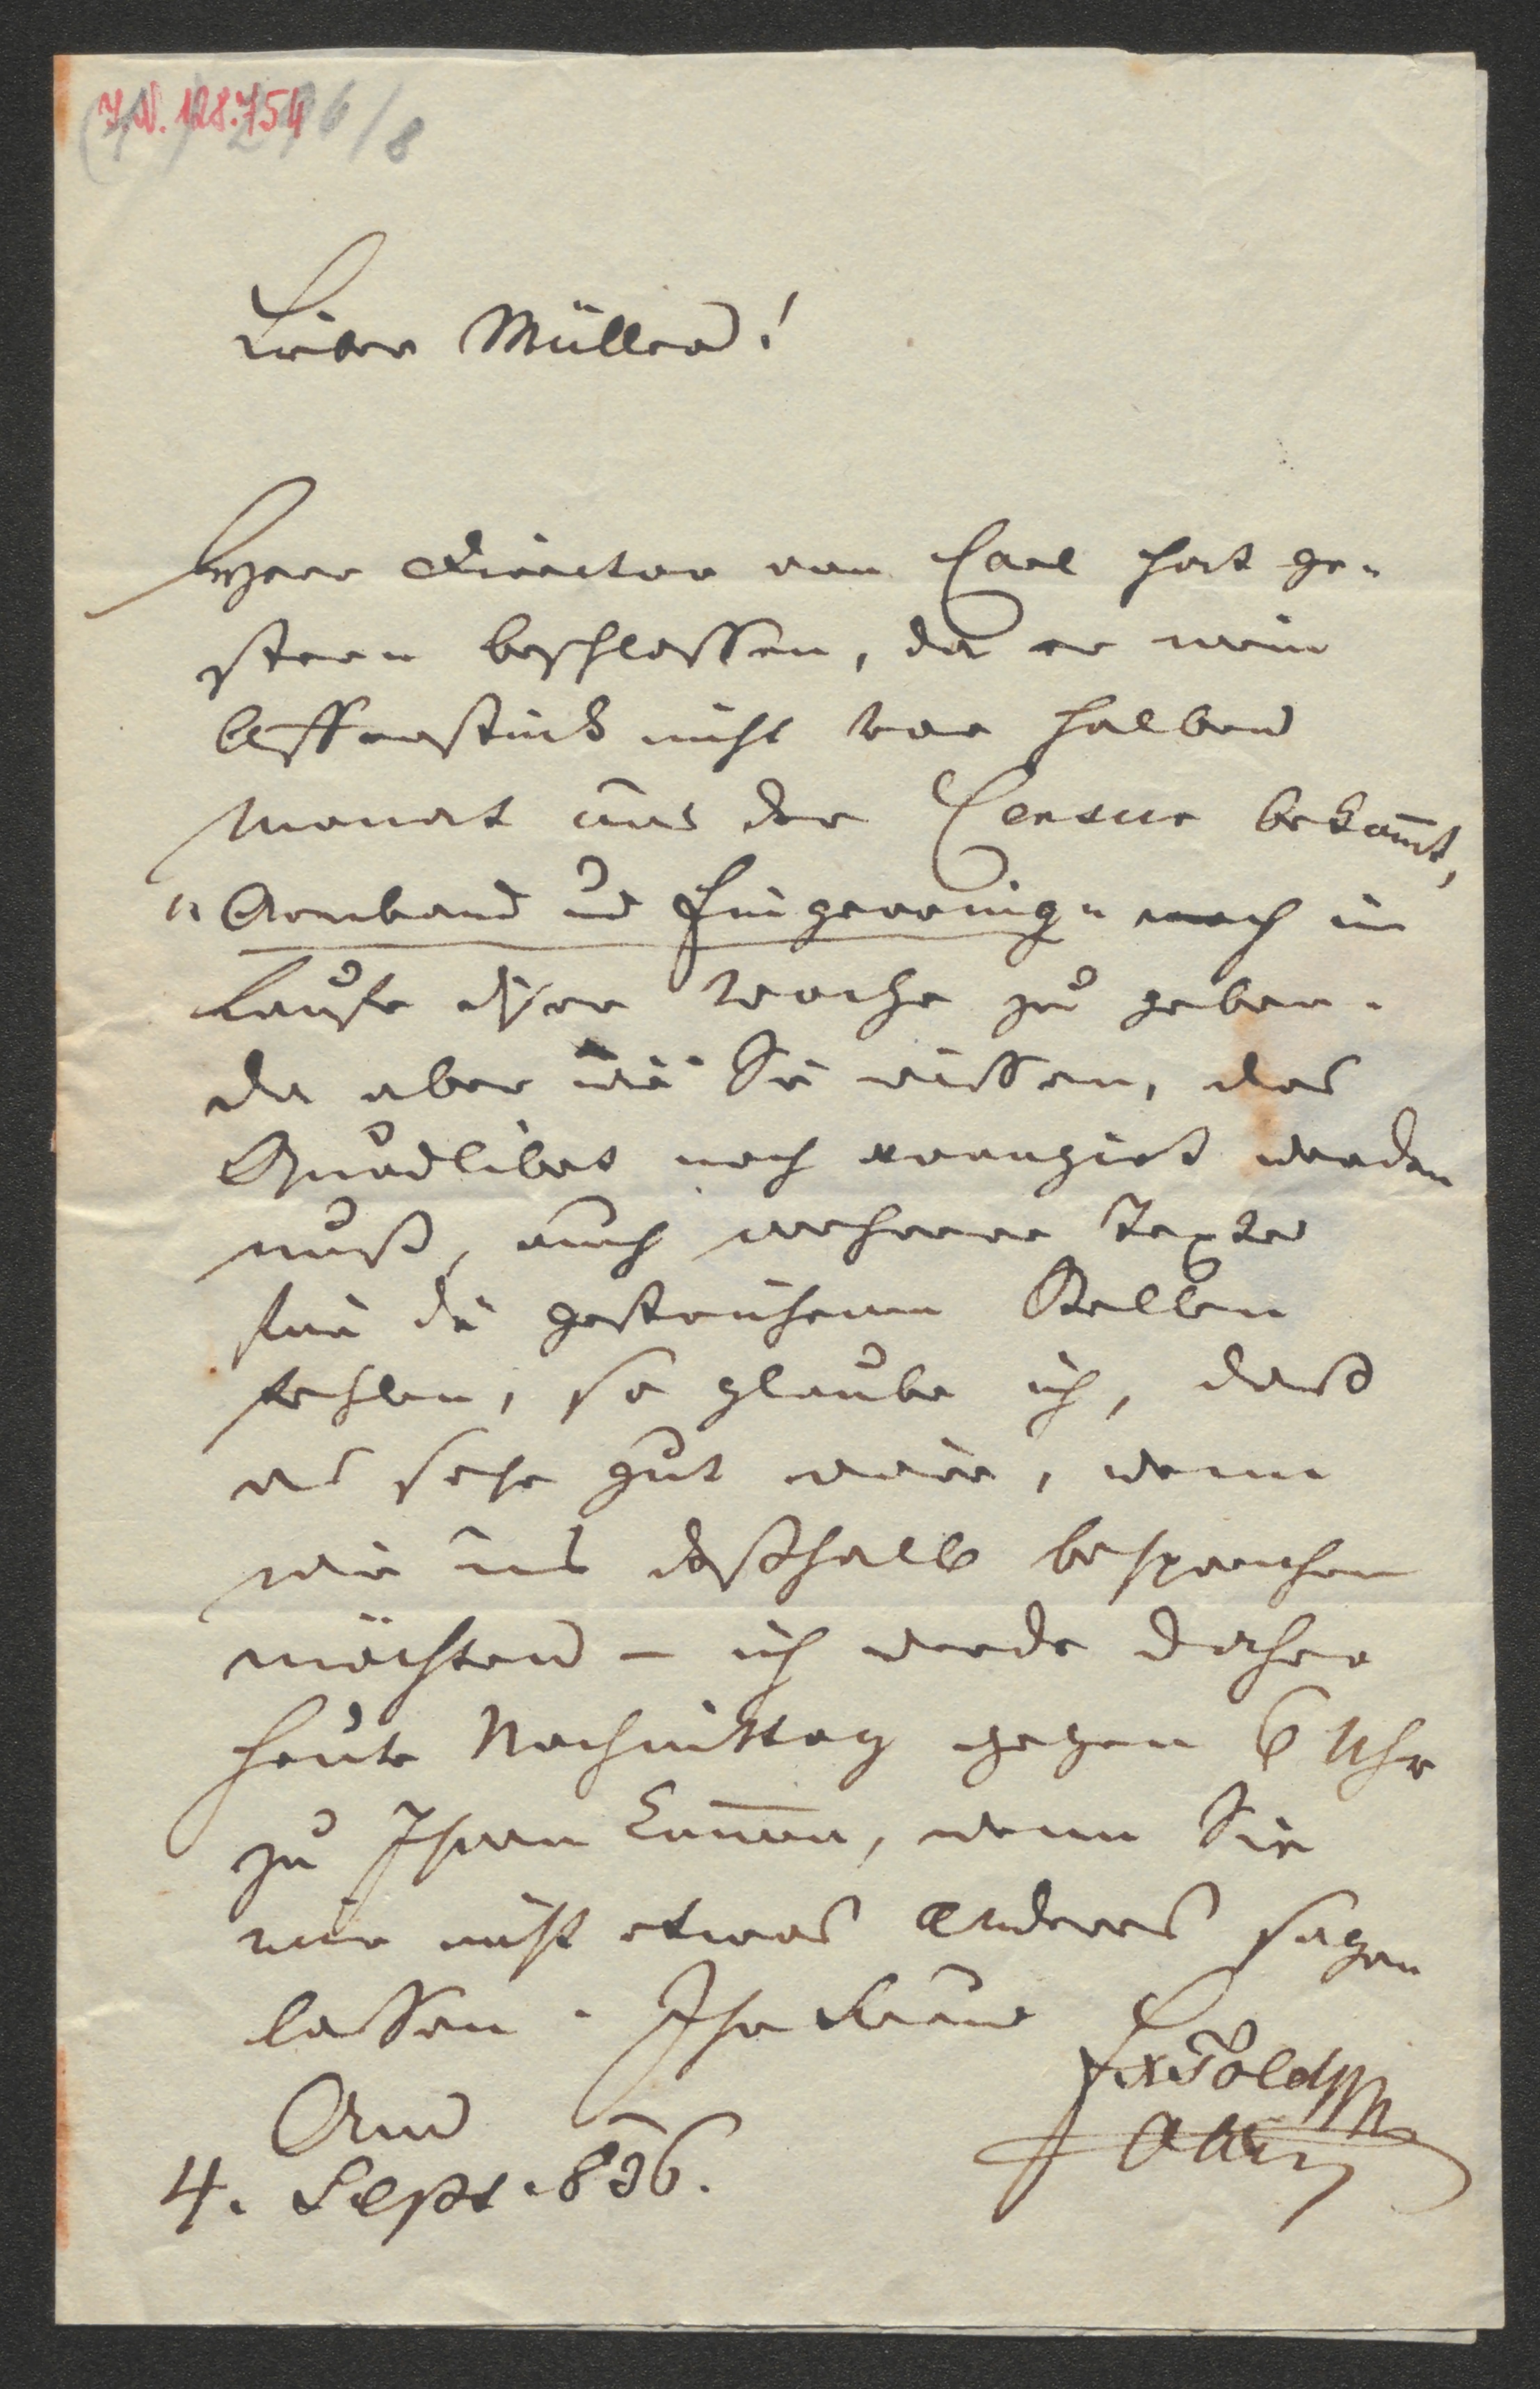 J.N. 128.754
6/8
Lieber Müller!
Herr Director von Carl hat ge-
stern beschlossen, da er mein
Affenstück nicht vor halben
Monat aus der Censur bekommt,
"Armband und Fingerring" noch im
Laufe diser Woche zu geben.
Da aber wie Sie wissen, das
Quodlibet noch arangirt werden
muß, auch mehrere Texte
für die gestrichenen Stellen
fehlen, so glaube ich, daß
es sehr gut wäre, wenn
wir uns deßhalb besprechen
möchten – ich werde daher
heute Nachmittag gegen 6 Uhr
zu Ihnen kommen, wenn Sie
mir nicht etwas anderes sagen
lassen. Ihr Freund
FXTold
Am
4. Sept. 836.